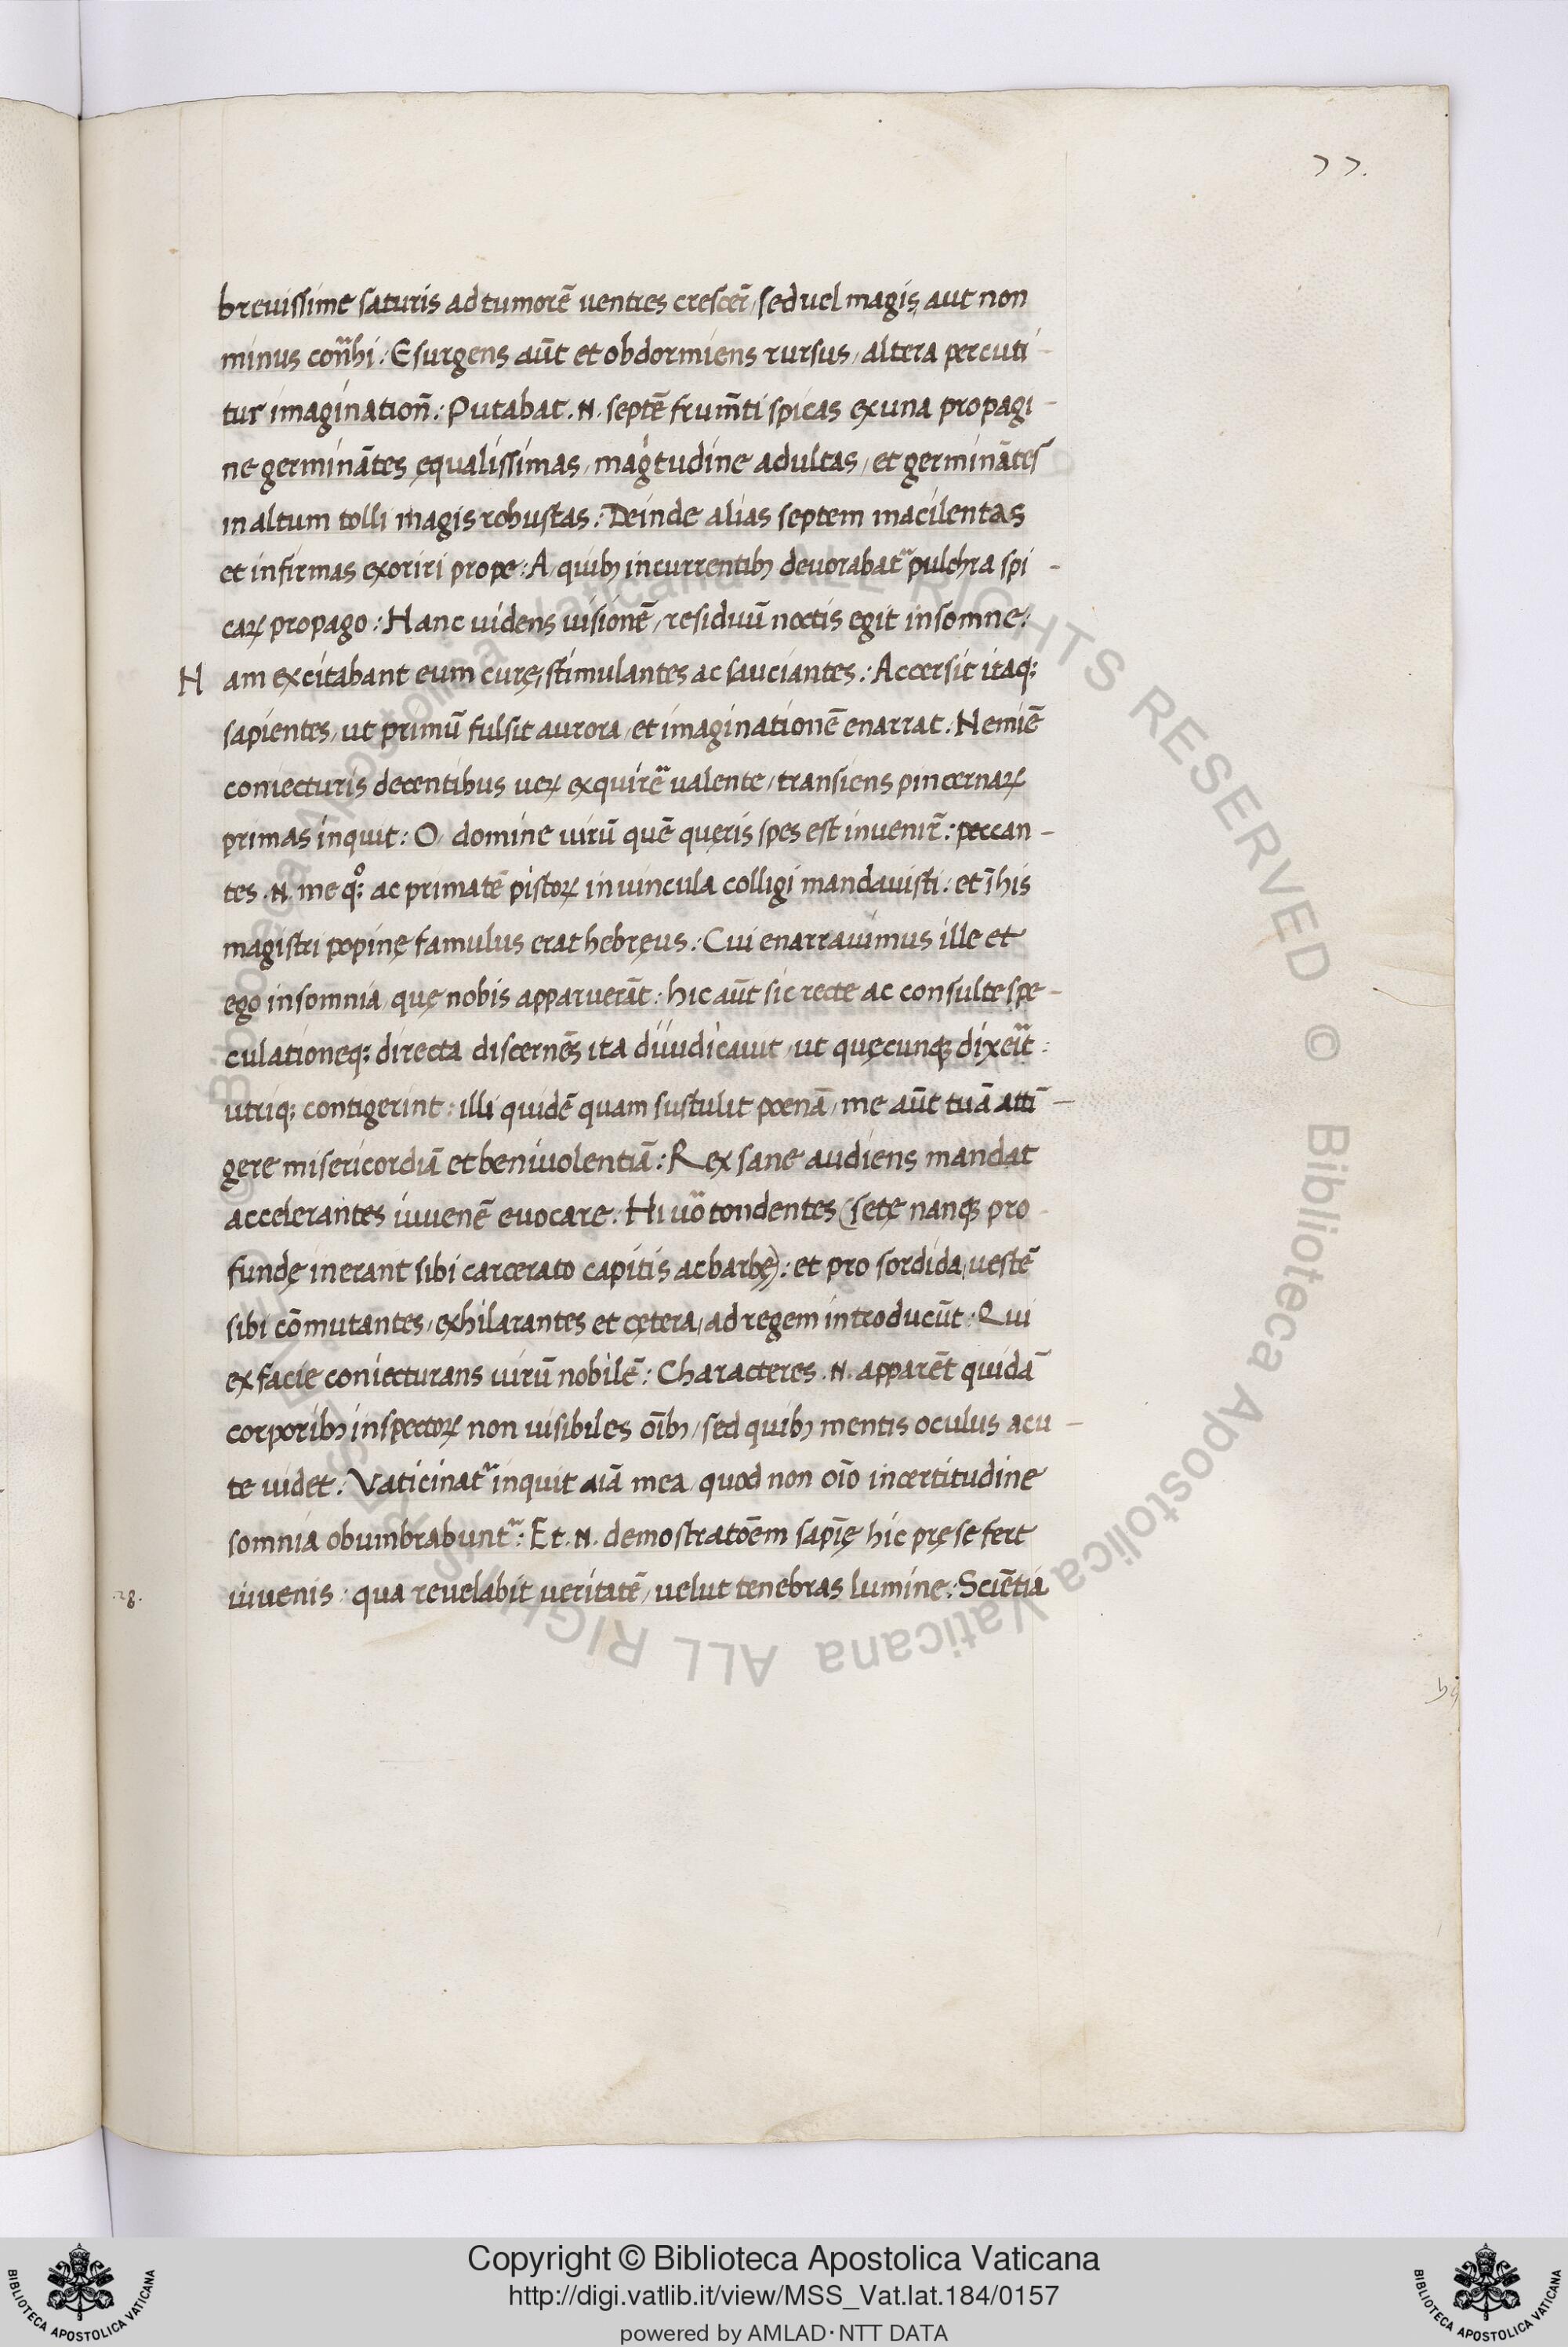 77.
breuissime saturis ad tumorē uentres crescer̄, sed uel magis, aut non
minus cont̃hi: Esurgens aūt et obdormiens rursus, altera percuti-
tur imaginatioñ: Putabat .N. septē frum̄ti spicas ex una propagi-
ne germinātes ęqualissimas, magi̇tudine adultas, et germinātes
in altum tolli magis robustas: Deinde alias septem macilentas
et infirmas exoriri prope: A quibꝫ incurrentibꝫ deuorabat᷑ pulchra spi-
caꝝ propago: Hanc uidens uisionē, residuū noctis egit insomne:
Nam excitabant eum curę, stimulantes ac sauciantes: Accersit itaq;
sapientes, ut primū fulsit aurora, et imaginationē enarrat. Nemiē
coniecturis decentibus ueꝝ exquirē ualente, transiens pincernaꝝ
primas inquit: O domine uirū quē quęris spes est inuenir̄: peccan-
tes .N. me qͦ; ac primatē pistoꝝ in uincula colligi mandauisti: et ī his
magistri popinę famulus erat hebręus: Cui enarrauimus ille et
ego insomnia, quę nobis apparuerāt: hic aūt sic recte ac consulte spe-
culationeq; directa discernēs ita diiudicauit, ut quęcunqꝫ dixeīt:
utriq; contigerint: illi quidē quam sustulit poenā, me aūt tuā attī-
gere misericordiā et beniuolentiā: Rex sane audiens mandat
accelerantes iuuenē euocare: Hi uō tondentes (setę nanqꝫ pro
fundę inerant sibi carcerato capitis ac barbę): et pro sordida, uestē
sibi cōmutantes, exhilarantes et cętera, ad regem introducūt: Qui
ex facie coniecturans uirū nobilē: Characteres .N. apparēt quidā
corporibꝫ inspectoꝝ non uisibiles oībꝫ, sed quibꝫ mentis oculus acu-
te uidet: Vaticinat᷑ inquit aiā mea, quod non oīo incertitudine
somnia obumbrabunt᷑: Et .N. demostratōem sapīę hic pręsefert
.28. iuuenis: qua reuelabit ueritatē, uelut tenebras lumine: Sciētia
© Biblioteca Apostolica Vaticana ALL RIGHTS RESERVED © Biblioteca Apostolica Vaticana ALL RIGHTS RESERVED
Copyright © Biblioteca Apostolica Vaticana
http://digi.vatlib.it/view/MSS_Vat.lat.184/0157
powered by AMLAD·NTT DATA
BIBLIOTECA APOSTOLICA VATICANA
BIBLIOTECA APOSTOLICA VATICANA